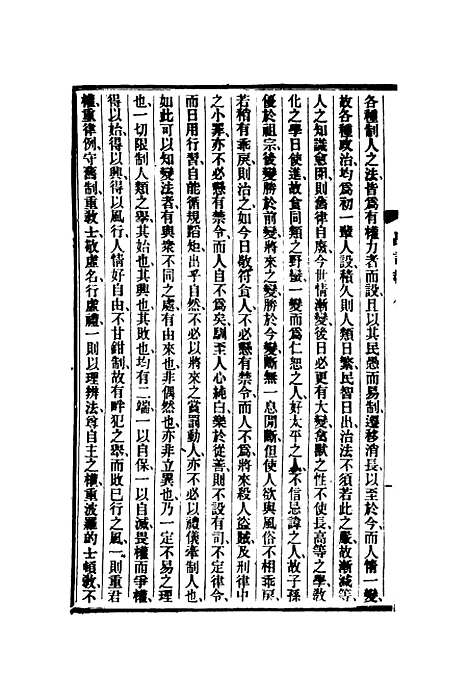 各種制人之法、皆爲有權力者而設、且以其民愚而易制、遷移消長、以至於今、而人情一變、
故各種政治、均爲初一輩人設、積久則人類日繁、民智日出、治法不須若此之嚴、故漸減等、
人之知識愈開、則舊律自廢、今世情漸變、後日必更有大變、禽獸之性、不使長、高等之學、敎
化之學、日使進、故食同類之野蠻、一變而爲仁恕之人、好太平之人、不信忌諱之人、故子孫
優於祖宗、後變勝於前變、將來之變、勝於今變、斷無一息間斷、但使人欲與風俗不相乖戾、
若稍有乖戾、則治之如今日敬符食人、不必懸有禁令、而人不爲、將來殺人盜賊、及刑律中
之小罪、亦不必懸有禁令、而人自不爲矣、馴至人心純白、樂於從善、則不設有司、不定律令、
而日用行習、自能循規蹈矩、出乎自然、不必以將來之賞罰動人、亦不必以禮儀牽制人也、
如此可以知變法者、有與衆不同之處、有由來也、非偶然也、亦非立異也、乃一定不易之理
也、一切限制人類之舉、其始也、其興也、其敗也、均有二端、一以自保、一以自減、畏權而爭權、
得以始、得以興、得以風行、人情好自由、不甘鉗制、故有畔犯之舉、而敗已行之風、一則重君
權、重律例、守舊制、重敎士、敬虛名、行虛禮、一則以理辨法、尊自主之權、重波羅的士頓敎、不